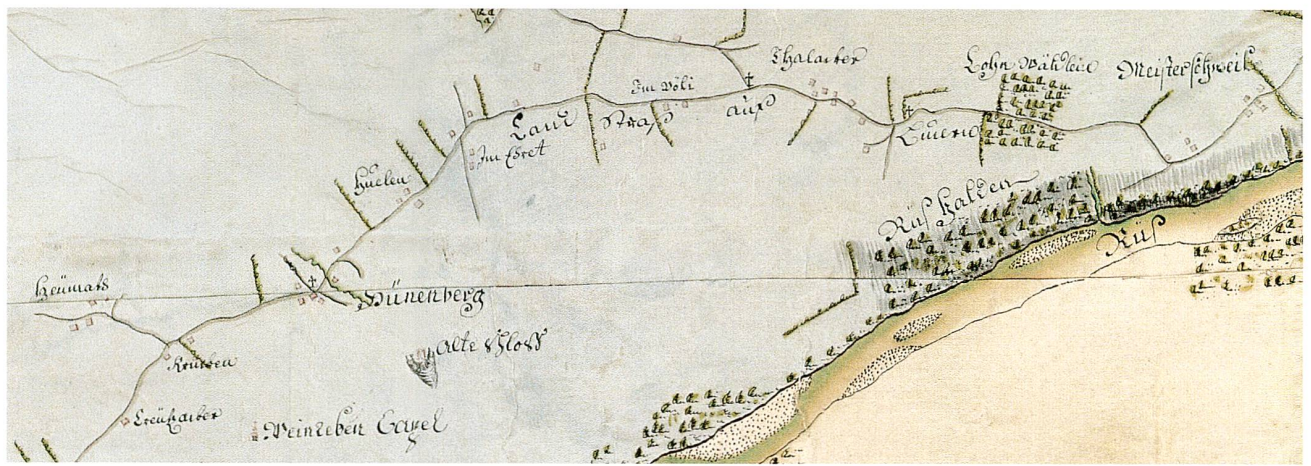 Thalacker
Lohn Wäldlein
Meisterschweil
Im Völi
Land Straß auß Lucern
Im Ehret
Huelen
Rüß halden
Rüß
Heümats
Hünenberg
Alte Schloß
Kruzen
Creüzacker
Weinreben Capel